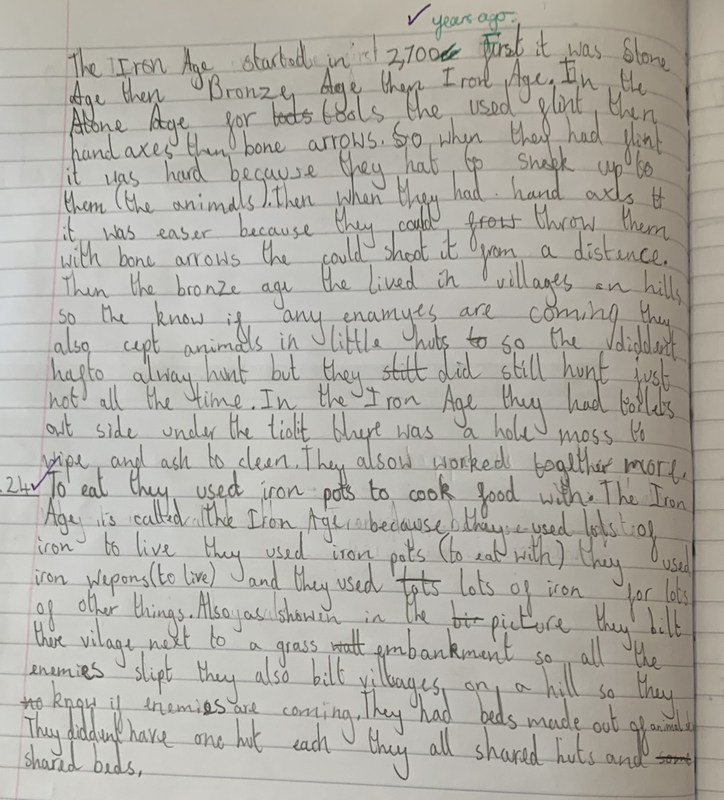 ✓ years ago.
The Iron Age started in 2,700 First it was Stone
Age then Bronze Age then Iron Age. In the
Atone Age for toals the used flint then
hand axes then bone arrows. So when they had flint
it was hard because they hat to sneek up to
them (the animals). Then when they had hand axds
it was easer because they could throw them
with bone arrows the could shoot it from a distence.
Then the bronze age the lived in villages on hills
so the know if any enamyes are coming they
also cept animals in little huts so the diddent
hafto alway hunt but they did still hunt just
not all the time. In the Iron Age they had toilets
out side under the tiolit there was a hole moss to
wipe and ash to cleen. They alsow worked together more.
24 ✓ To eat they used iron pots to cook food with. The Iron
Age is called the Iron Age because they used lots of
iron to live they used iron pots (to eat with) they used
iron wepons (to live) and they used lots of iron for lots
of other things. Also as showen in the picture they bilt
there vilage next to a grass embankment so all the
enemies slipt they also bilt villages on a hill so they
know if enemies are coming. They had beds made out of animal
They diddent have one hut each they all shared huts and
shared beds.